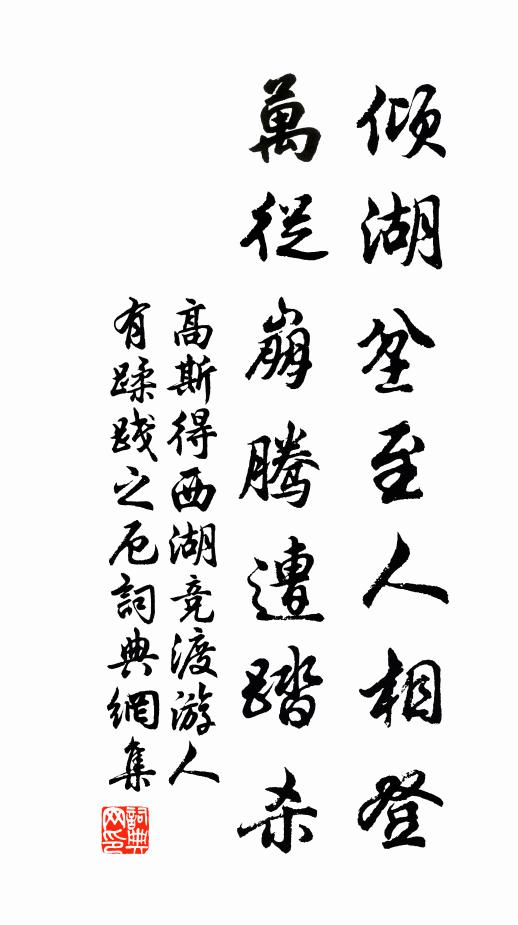 倾湖坌至人相登
萬從崩騰遭踏杀
高斯得西湖竞渡游人
有蹂践之厄詞典網集
詞典网印